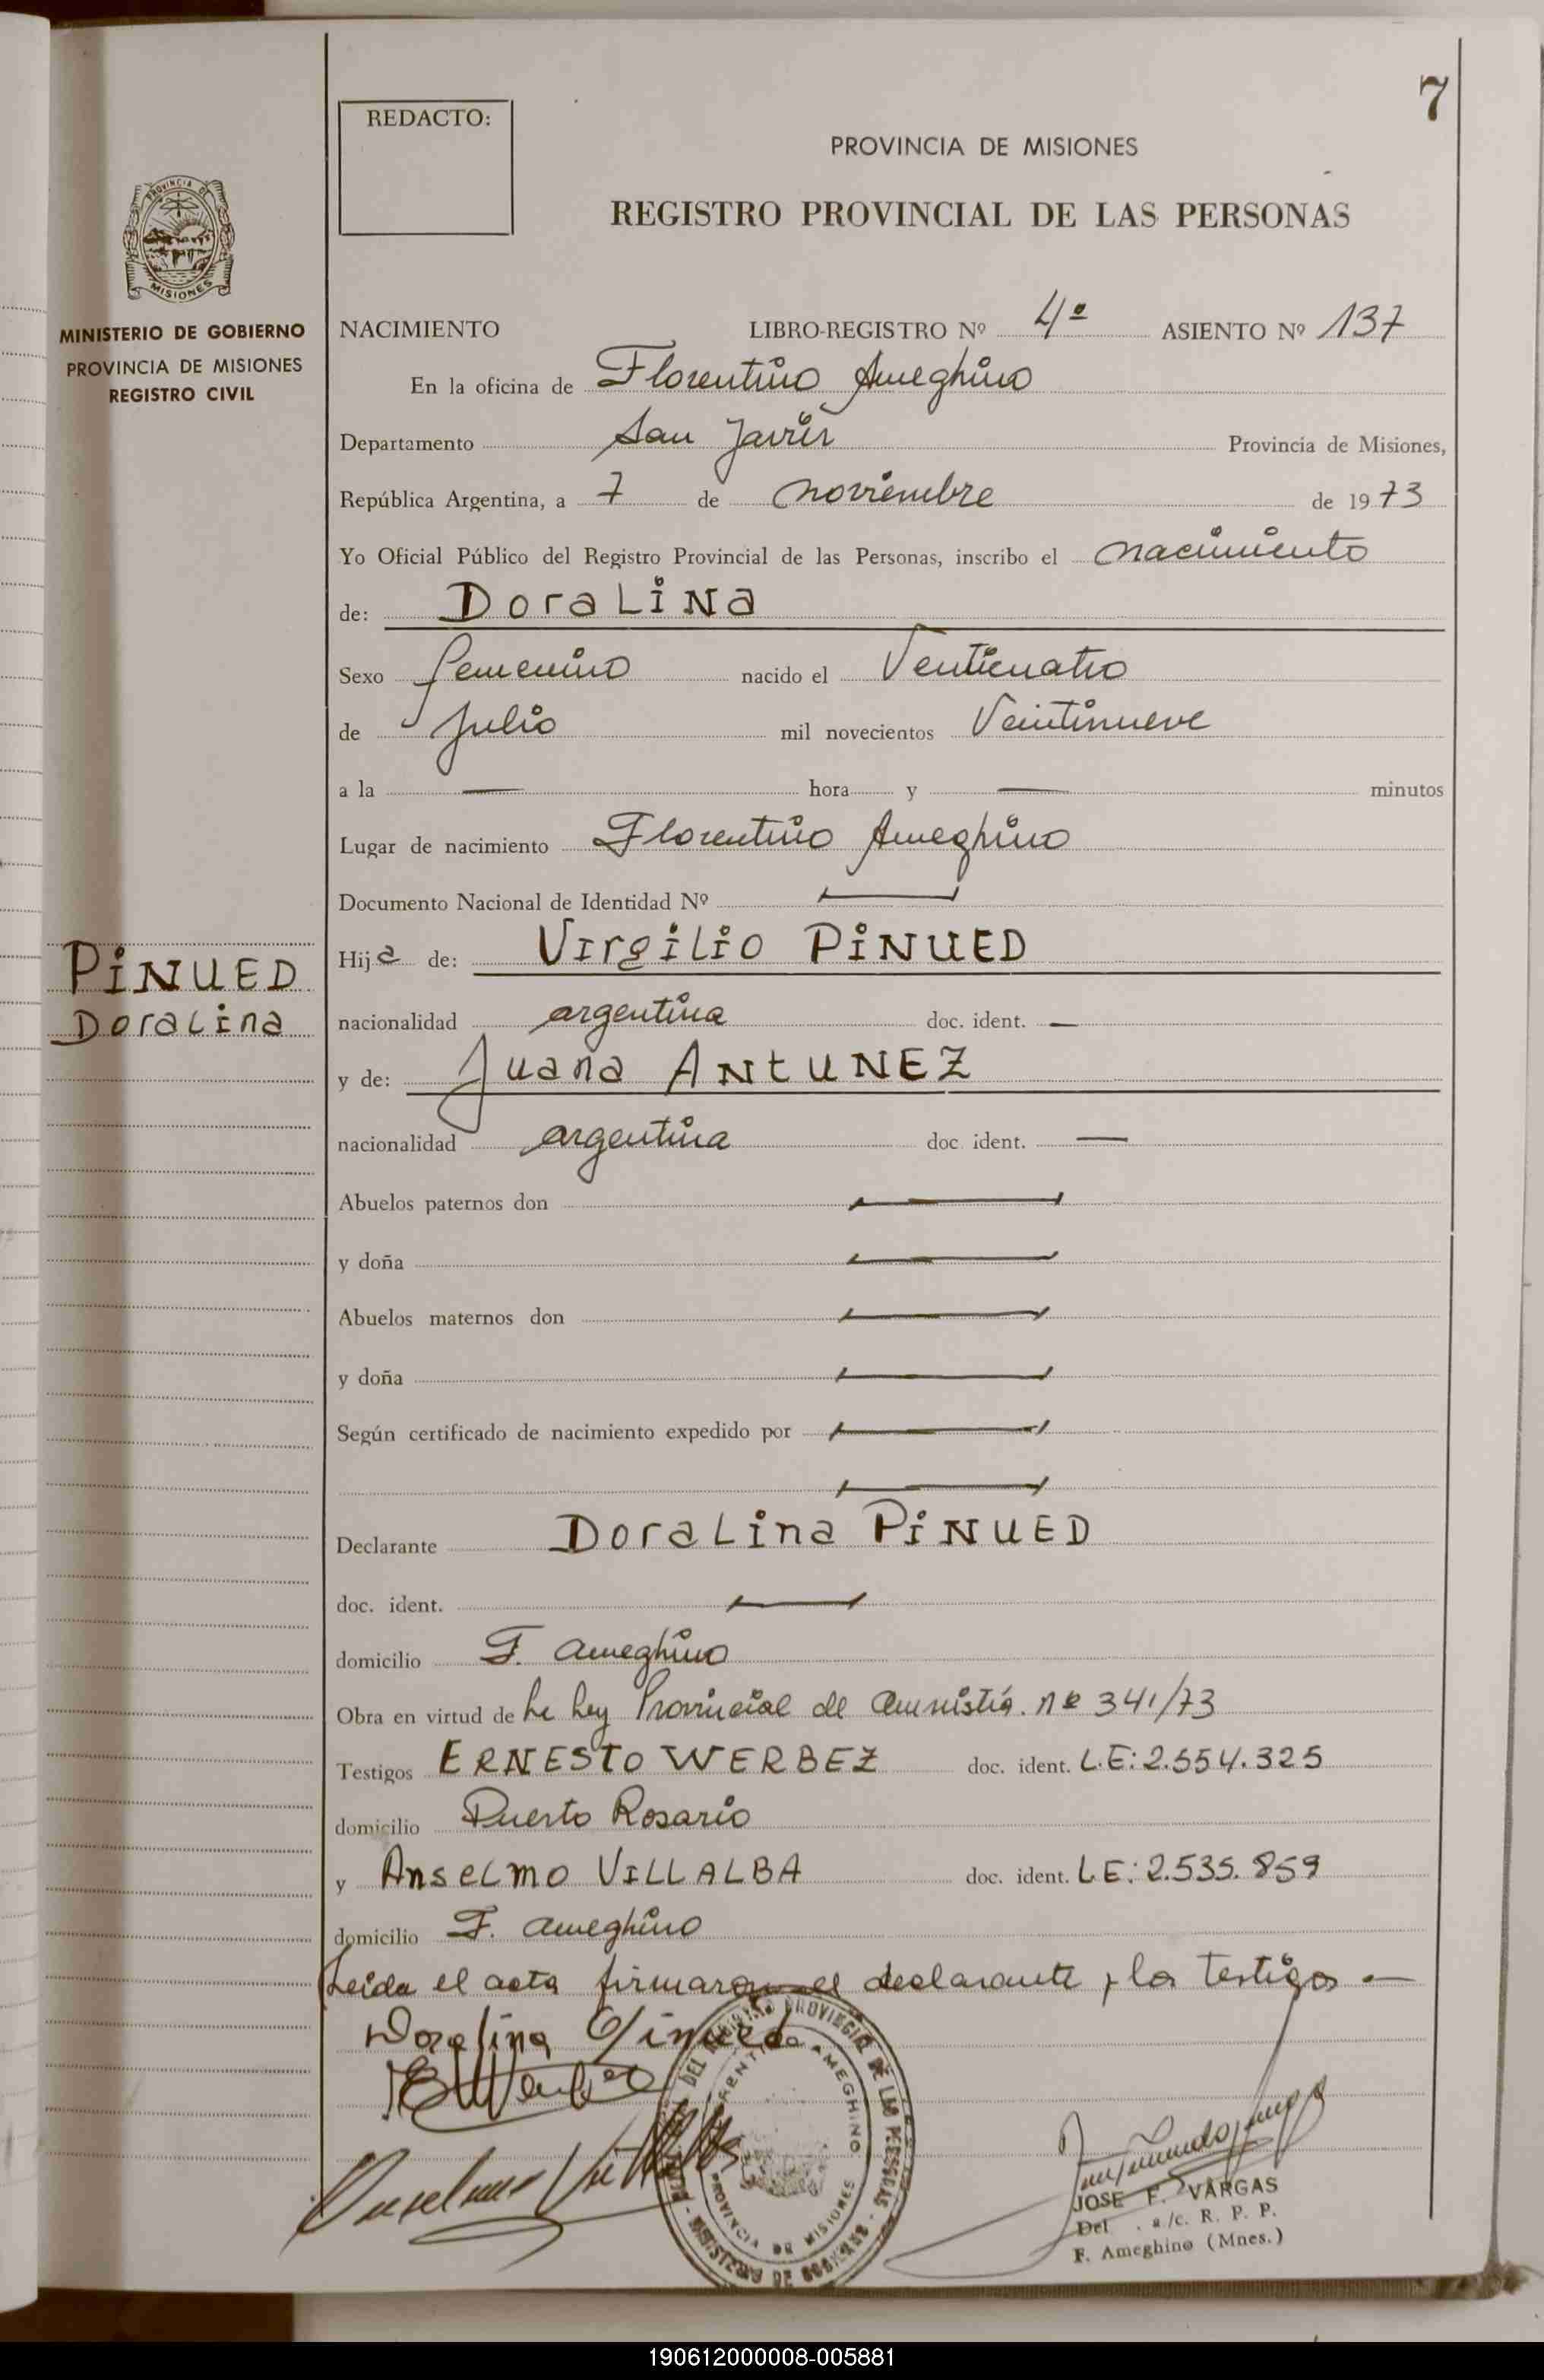 7
REDACTO:
PROVINCIA DE MISIONES
REGISTRO PROVINCIAL DE LAS PERSONAS
PROVINCIA DE
MISIONES
MINISTERIO DE GOBIERNO
PROVINCIA DE MISIONES
REGISTRO CIVIL
NACIMIENTO LIBRO-REGISTRO Nº 4º ASIENTO Nº 137
En la oficina de Florentino Ameghino
Departamento San Javier Provincia de Misiones,
República Argentina, a 7 de noviembre de 1973
Yo Oficial Público del Registro Provincial de las Personas, inscribo el nacimiento
de: DoraLiNa
Sexo femenino nacido el Venticuatro
de Julio mil novecientos Veintinueve
a la — hora y — minutos
Lugar de nacimiento Florentino Ameghino
Documento Nacional de Identidad Nº —
PiNUED
DoraLina
Hija de: VIrgiLio PiNUED
nacionalidad argentina doc. ident. —
y de: Juana ANtUNEZ
nacionalidad argentina doc. ident. —
Abuelos paternos don —
y doña —
Abuelos maternos don —
y doña —
Según certificado de nacimiento expedido por —
—
Declarante DoraLina PiNUED
doc. ident. —
domicilio F. Ameghino
Obra en virtud de La Ley Provincial de Amnistía. nº 341/73
Testigos ERNESTO WERBEZ doc. ident. L.E: 2.554.325
domicilio Puerto Rosario
y AnseLmo VILLALBA doc. ident. LE: 2.535.859
domicilio F. Ameghino
Leida el acta firmaron el declarante y los testigos —
Doralina Pinued
JOSE F. VARGAS
Del . a/c. R. P. P.
F. Ameghino (Mnes.)
190612000008-005881